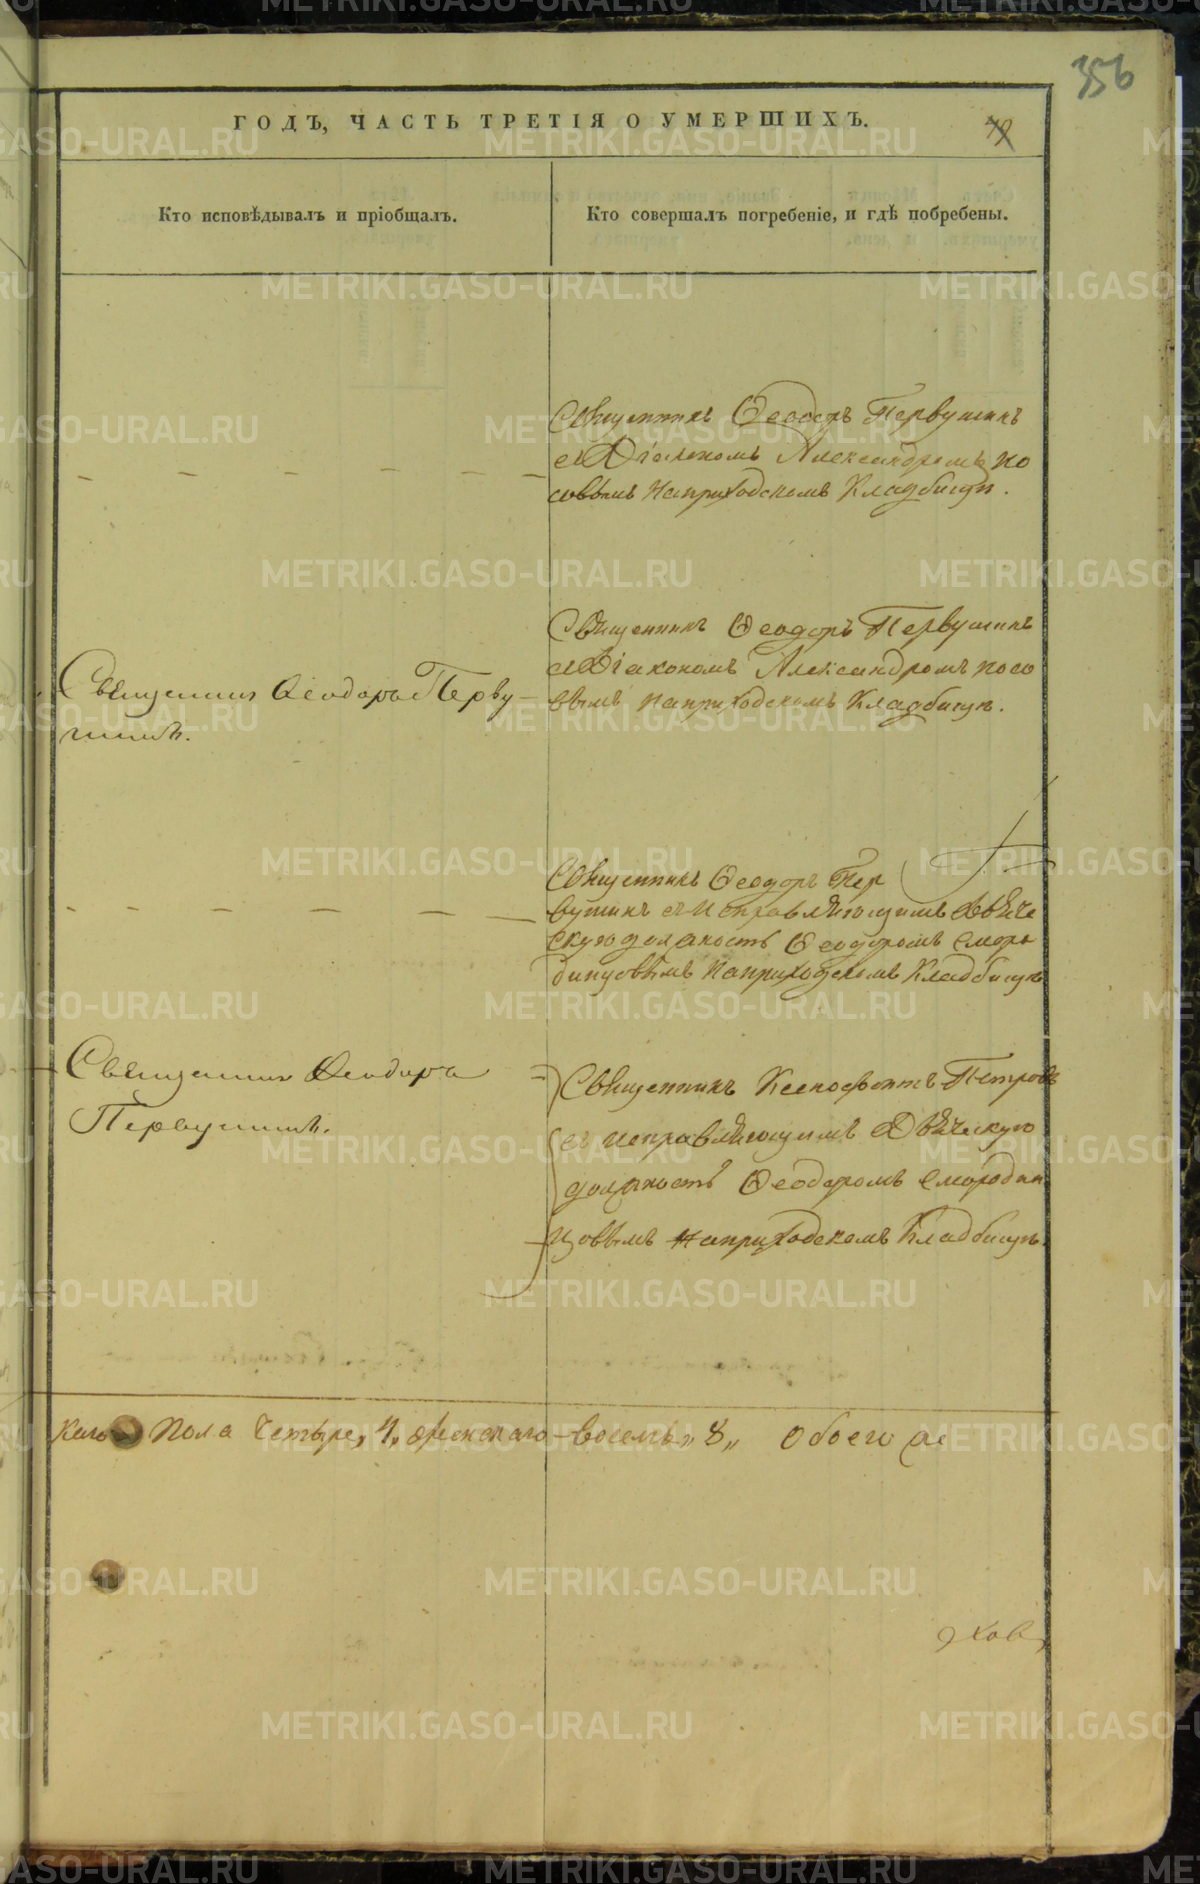 356
ГОДЪ, ЧАСТЬ ТРЕТІЯ О УМЕРШИХЪ.
Кто исповѣдывалъ и пріобщалъ.
Кто совершалъ погребеніе, и гдѣ побребены.
Священникъ Ѳеодоръ Первушинъ
съ Діакономъ Александромъ по
совымъ на приходскомъ Кладбищѣ.
Священникъ Ѳеодоръ Перву-
шинъ.
Священникъ Ѳеодоръ Первушинъ
съ Діакономъ Александромъ посо
вымъ на приходскомъ Кладбищѣ.
Священникъ Ѳеодоръ Пер
вушинъ съ исправляющимъ Дьяче
скую должность Ѳеодоромъ Сморо
динцовымъ на приходскомъ Кладбищѣ
Священникъ Ѳеодоръ
Первушинъ.
Священникъ Ксенофонтъ Петровъ
съ исправляющимъ Дьяческую
должность Ѳеодоромъ Смородин
цовымъ на приходскомъ Кладбищѣ.
пола четыре, 4, женскаго восемь, 8, обоего
METRIKI.GASO-URAL.RU